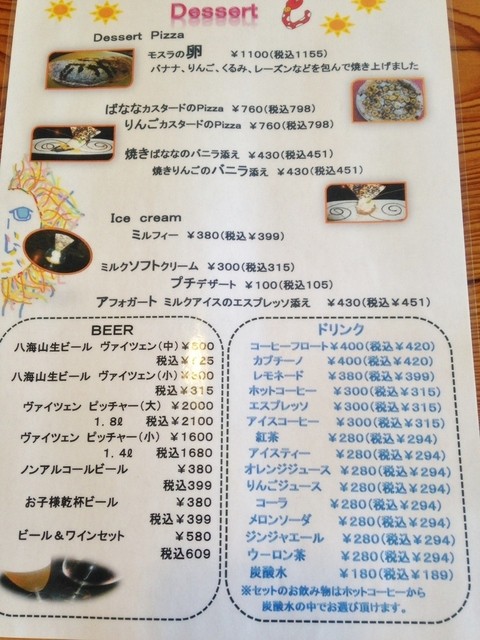 Dessert
Dessert Pizza
モスラの卵 ¥1100(税込1155)
バナナ、りんご、くるみ、レーズンなどを包んで焼き上げました
ばななカスタードのPizza ¥760(税込798)
りんごカスタードのPizza ¥760(税込798)
焼きばななのバニラ添え ¥430(税込451)
焼きりんごのバニラ添え ¥430(税込451)
Ice cream
ミルフィー ¥380(税込¥399)
ミルクソフトクリーム ¥300(税込315)
プチデザート ¥100(税込105)
アフォガート ミルクアイスのエスプレッソ添え ¥430(税込¥451)
BEER
八海山生ビール ヴァイツェン(中)
税込
八海山生ビール ヴァイツェン(小)
税込¥315
ヴァイツェン ピッチャー(大) ¥2000
1.8ℓ 税込¥2100
ヴァイツェン ピッチャー(小) ¥1600
1.4ℓ 税込1680
ノンアルコールビール ¥380
税込399
お子様乾杯ビール ¥380
税込¥399
ビール&ワインセット ¥580
税込609
ドリンク
コーヒーフロート¥400(税込¥420)
カプチーノ ¥400(税込¥420)
レモネード ¥380(税込¥399)
ホットコーヒー ¥300(税込¥315)
エスプレッソ ¥300(税込¥315)
アイスコーヒー ¥300(税込¥315)
紅茶 ¥280(税込¥294)
アイスティー ¥280(税込¥294)
オレンジジュース ¥280(税込¥294)
りんごジュース ¥280(税込¥294)
コーラ ¥280(税込¥294)
メロンソーダ ¥280(税込¥294)
ジンジャエール ¥280(税込¥294)
ウーロン茶 ¥280(税込¥294)
炭酸水 ¥180(税込¥189)
※セットのお飲み物はホットコーヒーから
炭酸水の中でお選び頂けます。